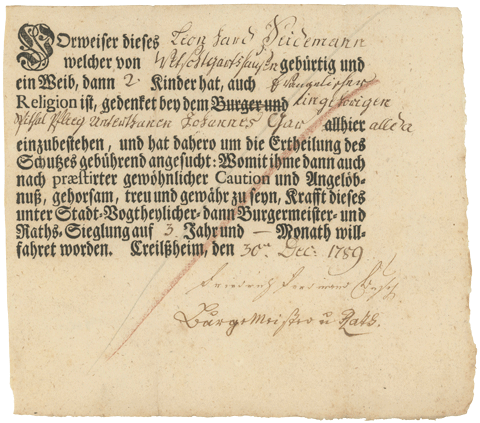 Vorweiser dieses Leonhard Seidemann
welcher von gebürtig und
ein Weib, dann 2. Kinder hat, auch Evangelischer
Religion ist, gedenket bey dem Burger und
Unterthanen Johannes allhier allda
einzubestehen, und hat dahero um die Ertheilung des
Schutzes gebührend angesucht: Womit ihme dann auch
nach præstirter gewöhnlicher Caution und Angelöb-
nuß, gehorsam, treu und gewähr zu seyn, Krafft dieses
unter Stadt-Vogtheylicher- dann Burgermeister- und
Raths-Sieglung auf 3. Jahr und — Monath will-
fahret worden. Creilßheim, den 30ten Dec: 1789
Friedrich Ferdinand
Burgemeister u Rath.